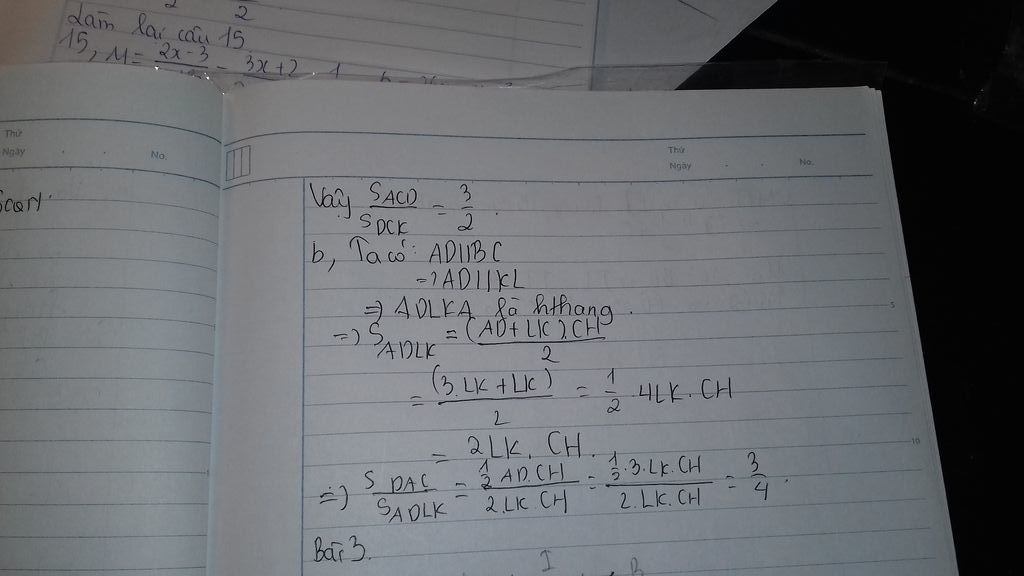 2
Làm lại câu 15
15, M = \frac{2x-3}{} - \frac{3x+2}{}
Thứ
Ngày . . No.
Thứ
Ngày . . No.
Vậy \frac{S_{ACD}}{S_{DCK}} = \frac{3}{2}.
b, Ta có: AD||BC
=> AD||KL
=> ADLKA là hthang.
=> S_{ADLK} = \frac{(AD+LK).CH}{2}
= \frac{(3.LK+LK)}{2} = \frac{1}{2}.4LK.CH
= 2LK.CH.
=> \frac{S_{DAC}}{S_{ADLK}} = \frac{\frac{1}{2}AD.CH}{2.LK.CH} = \frac{\frac{1}{2}.3.LK.CH}{2.LK.CH} = \frac{3}{4}.
Bài 3.
I
B
5
10